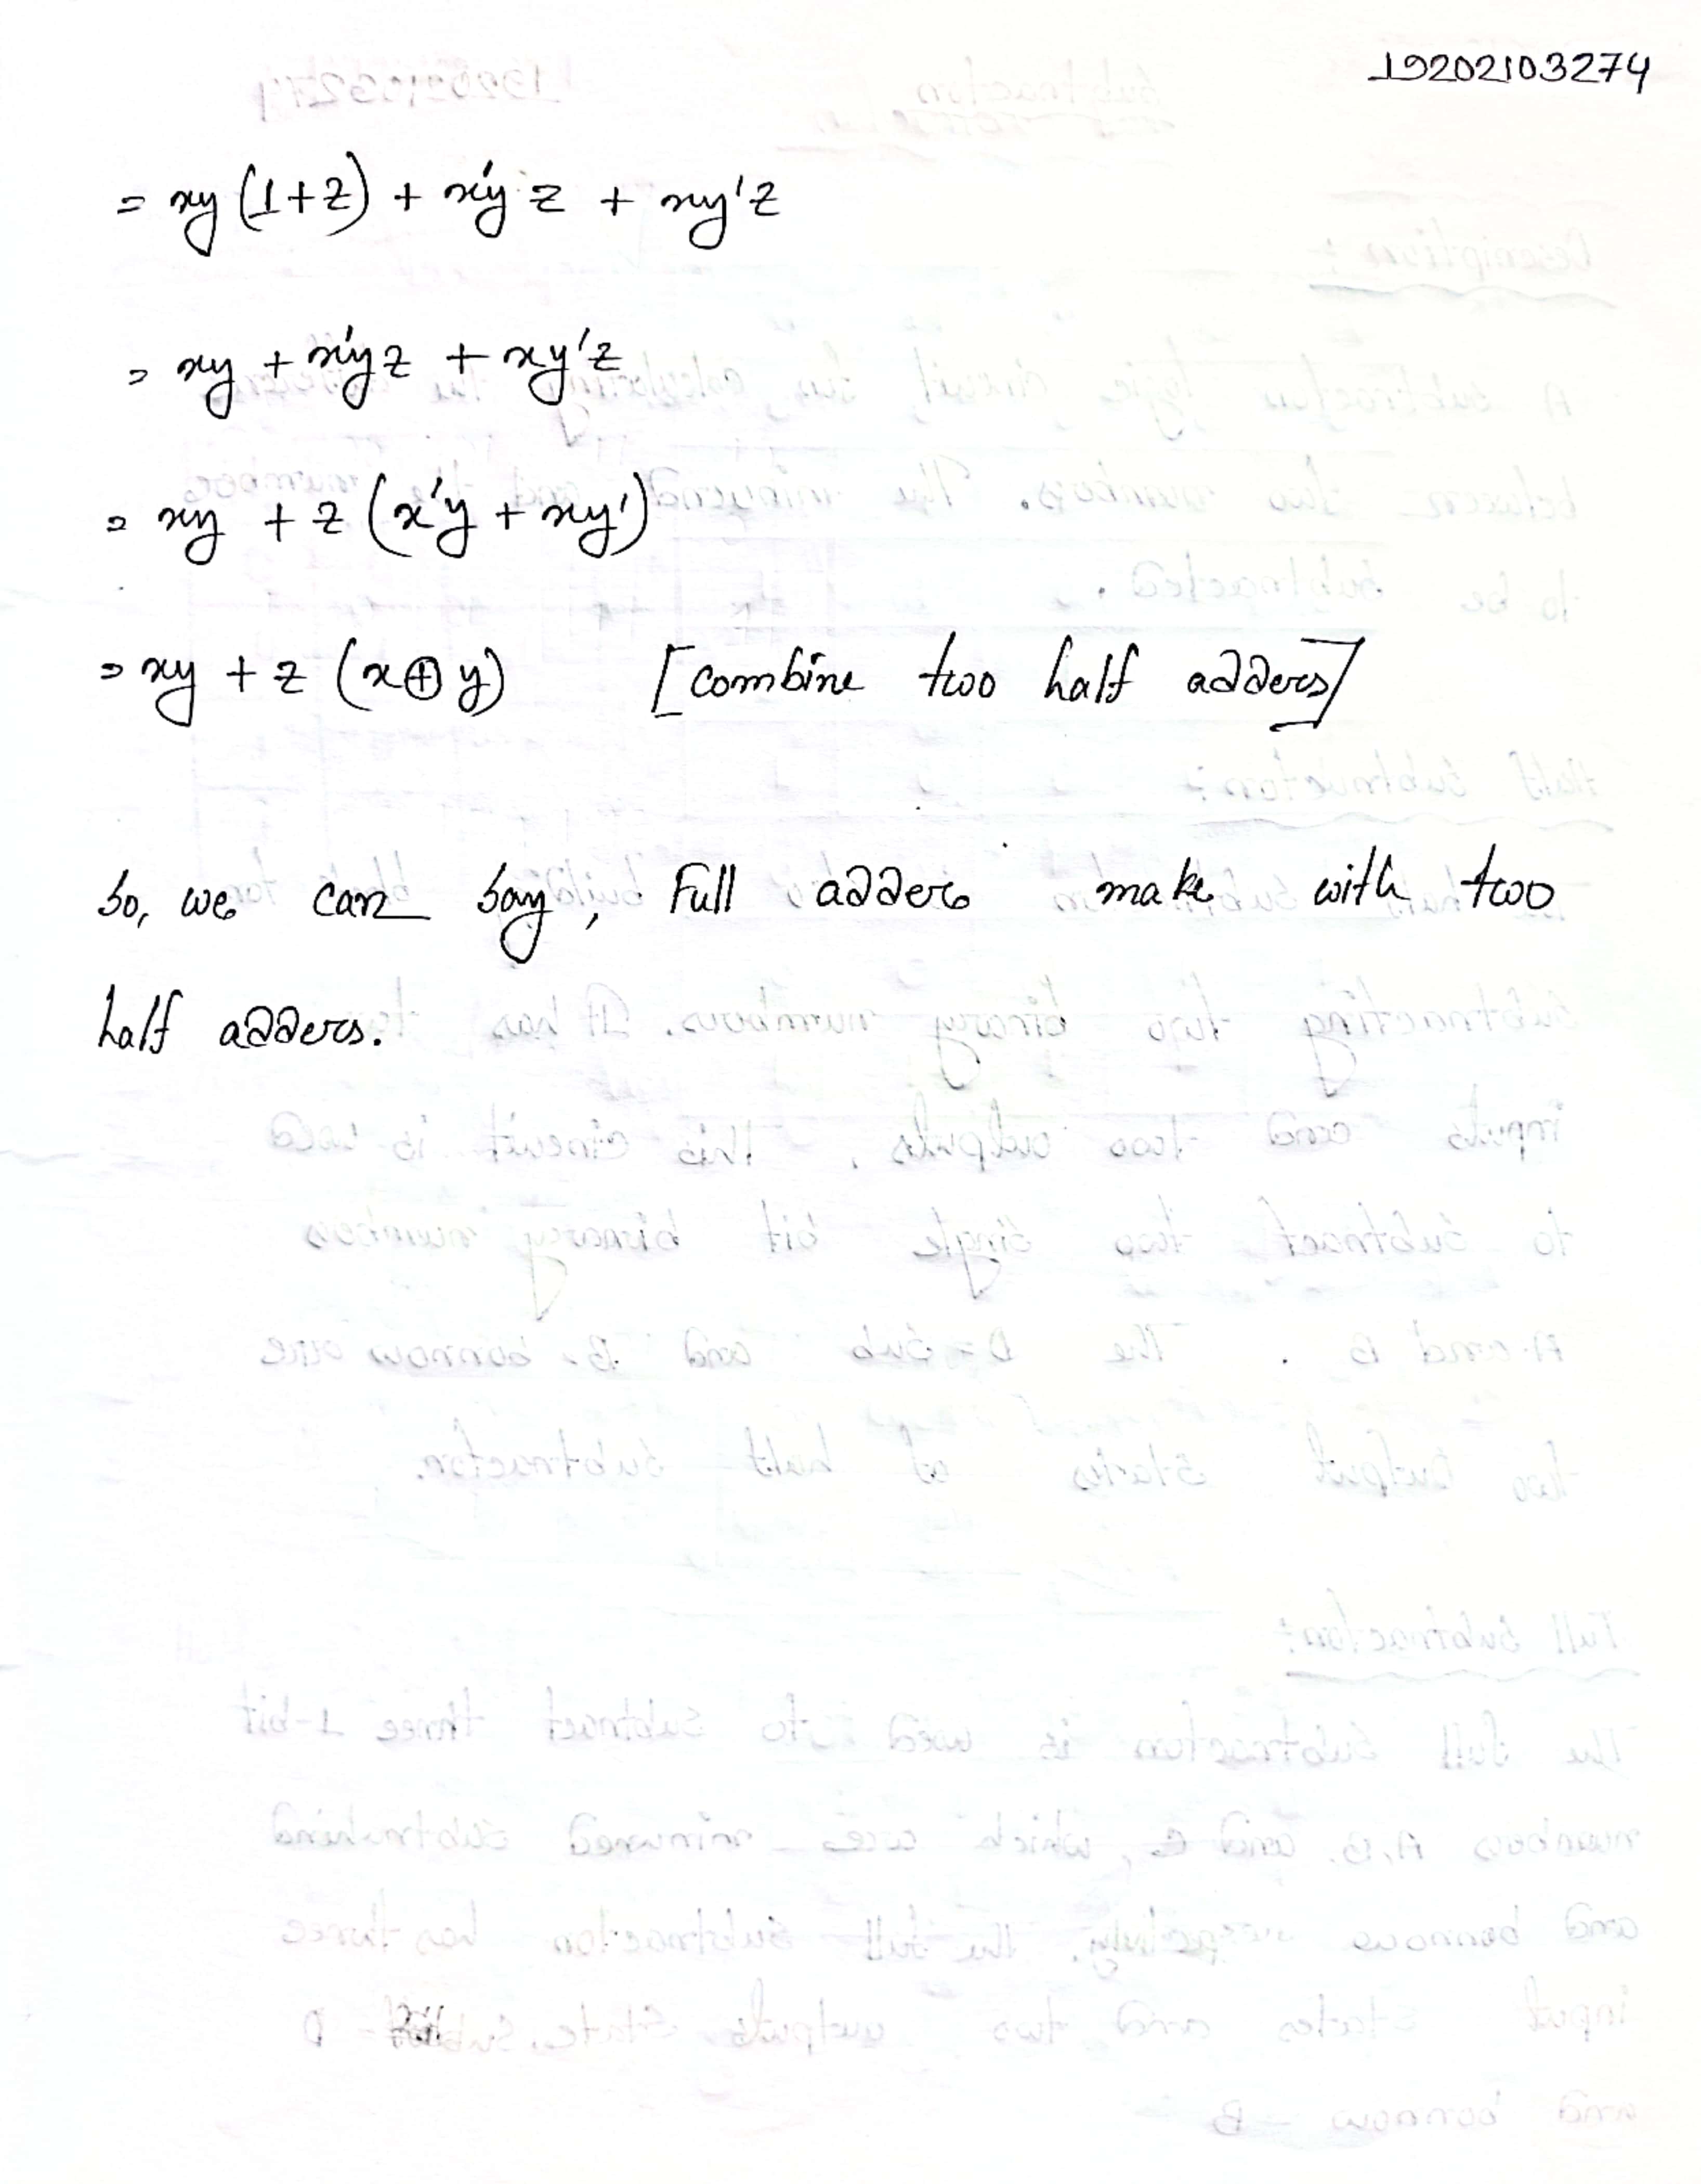 19202103274
= xy (1+z) + x'yz + xy'z
= xy + x'yz + xy'z
= xy + z (x'y + xy')
= xy + z (x⊕y) [combine two half adders]
So, we can say, Full adder make with two
half adders.